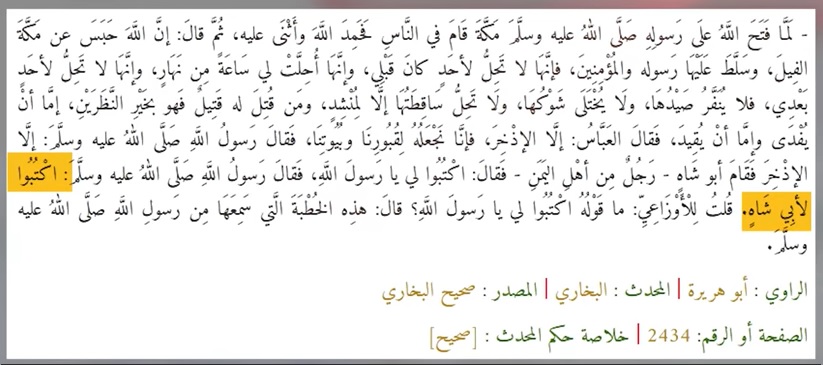 - لَمَّا فَتَحَ اللَّهُ علَى رَسولِهِ صَلَّى اللهُ عليه وسلَّمَ مَكَّةَ قَامَ في النَّاسِ فَحَمِدَ اللَّهَ وَأَثْنَى عليه، ثُمَّ قالَ: إنَّ اللَّهَ حَبَسَ عن مَكَّةَ
الفِيلَ، وسَلَّطَ عَلَيْهَا رَسوله والمُؤْمِنِينَ، فإنَّهَا لا تَحِلُّ لأحَدٍ كانَ قَبْلِي، وإنَّهَا أُحِلَّتْ لي سَاعَةً مِن نَهَارٍ، وإنَّهَا لا تَحِلُّ لأحَدٍ
بَعْدِي، فلا يُنَفَّرُ صَيْدُهَا، ولَا يُخْتَلَى شَوْكُهَا، ولَا تَحِلُّ سَاقِطَتُهَا إلَّا لِمُنْشِدٍ، ومَن قُتِلَ له قَتِيلٌ فَهو بخَيْرِ النَّظَرَيْنِ، إمَّا أنْ
يُفْدَى وإمَّا أنْ يُقِيدَ، فَقالَ العَبَّاسُ: إلَّا الإذْخِرَ، فإنَّا نَجْعَلُهُ لِقُبُورِنَا وبُيُوتِنَا، فَقالَ رَسولُ اللَّهِ صَلَّى اللهُ عليه وسلَّمَ: إلَّا
الإذْخِرَ فَقَامَ أبو شَاهٍ - رَجُلٌ مِن أهْلِ اليَمَنِ - فَقالَ: اكْتُبُوا لي يا رَسولَ اللَّهِ، فَقالَ رَسولُ اللَّهِ صَلَّى اللهُ عليه وسلَّمَ: اكْتُبُوا
لأبِي شَاهٍ. قُلتُ لِلْأَوْزَاعِيِّ: ما قَوْلُهُ اكْتُبُوا لي يا رَسولَ اللَّهِ؟ قالَ: هذِه الخُطْبَةَ الَّتي سَمِعَهَا مِن رَسولِ اللَّهِ صَلَّى اللهُ عليه
وسلَّمَ.
الراوي : أبو هريرة | المحدث : البخاري | المصدر : صحيح البخاري
الصفحة أو الرقم: 2434 | خلاصة حكم المحدث : [صحيح]